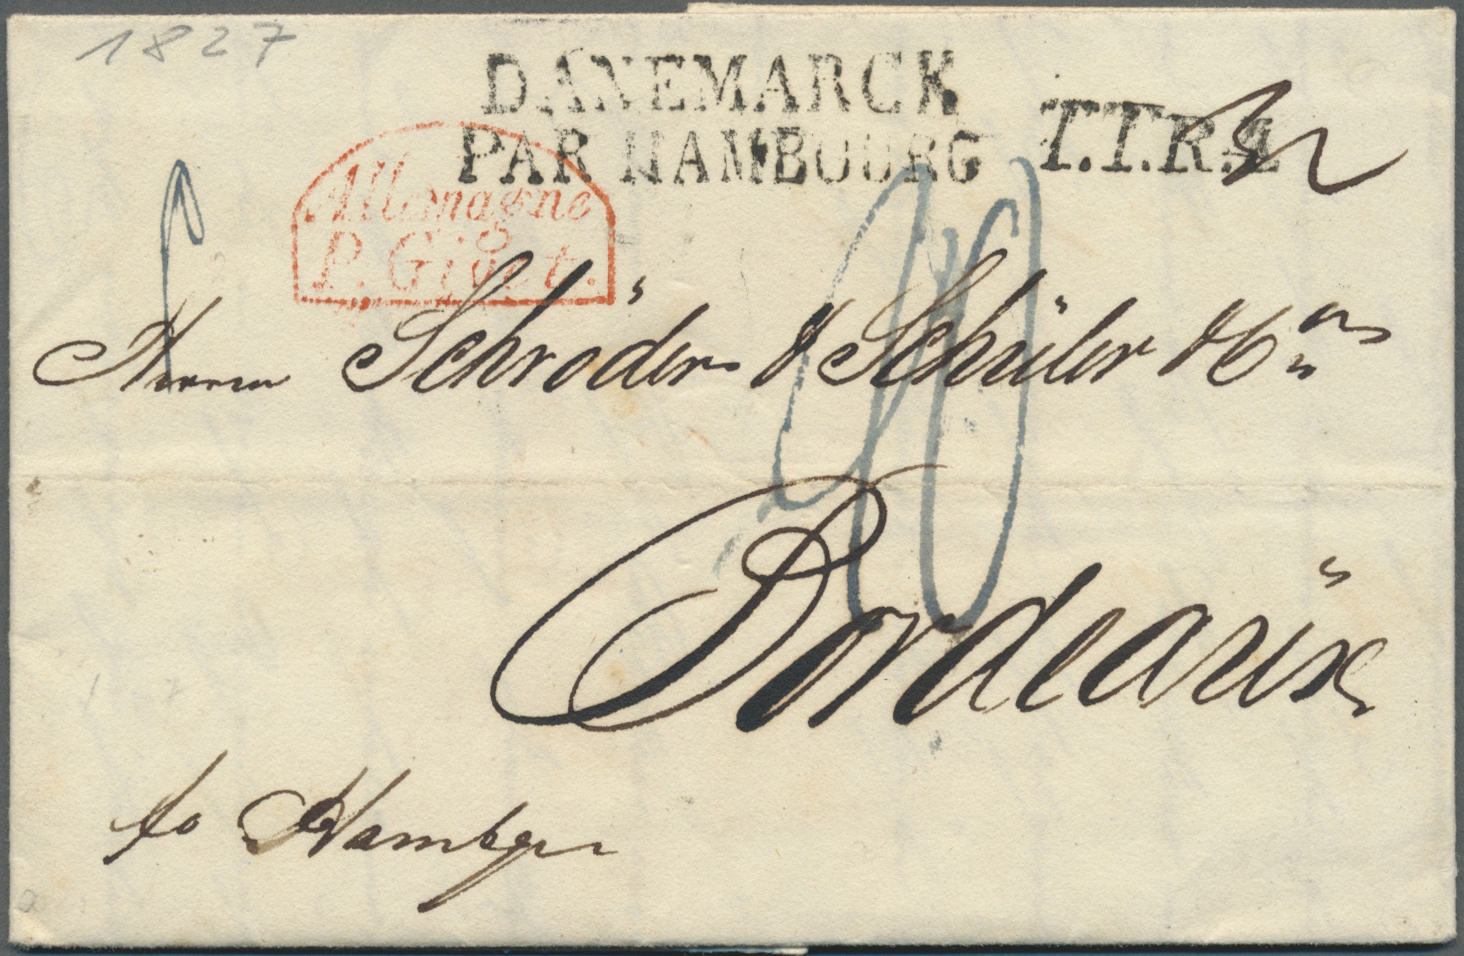 1827
DANEMARCK
PAR HAMBOURG
T.T.R.4
Allemagne
P. Givet.
Herren Schröder & Schüler & Co
Bordeaüx
fo Hambg